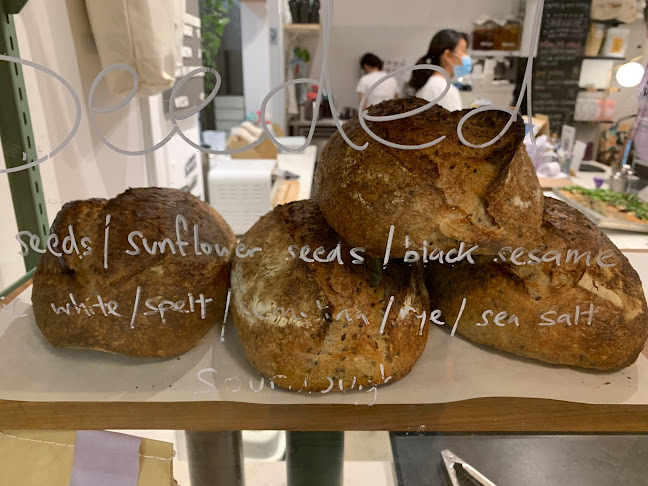 Seeded
seeds / sunflower seeds / black sesame
white / spelt / / rye / sea salt
Sourdough